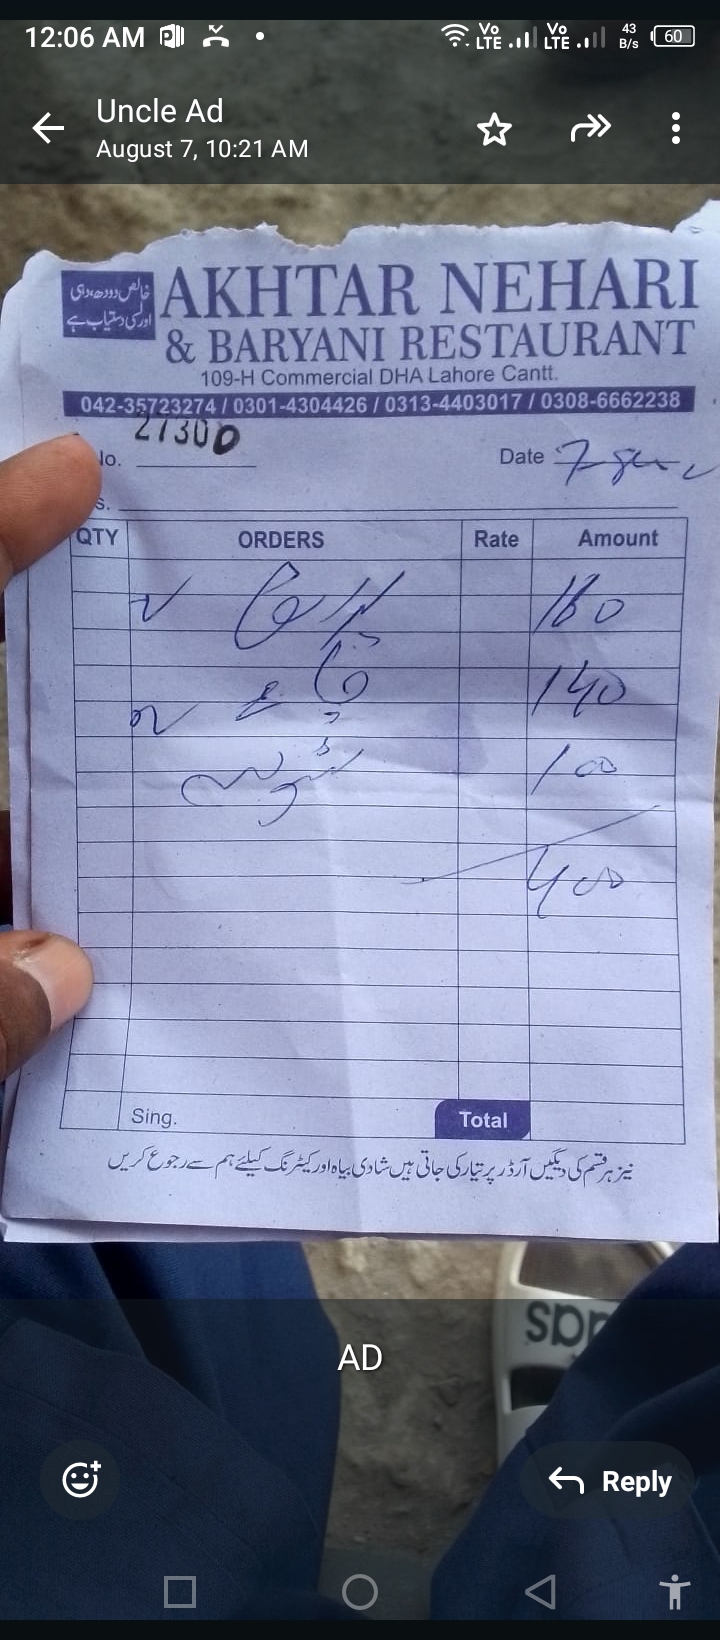 12:06 AM
Vo LTE Vo LTE 43 B/s 60
Uncle Ad
August 7, 10:21 AM
خالص دودھ، دہی
اور لسی دستیاب ہے
AKHTAR NEHARI
& BARYANI RESTAURANT
109-H Commercial DHA Lahore Cantt.
042-35723274 / 0301-4304426 / 0313-4403017 / 0308-6662238
No. 27300 Date 7
s.
QTY ORDERS Rate Amount
160
140
100
400
Sing. Total
نیز ہر قسم کی دیگیں آرڈر پر تیار کی جاتی ہیں شادی بیاہ اور کیٹرنگ کیلئے ہم سے رجوع کریں
AD
Reply